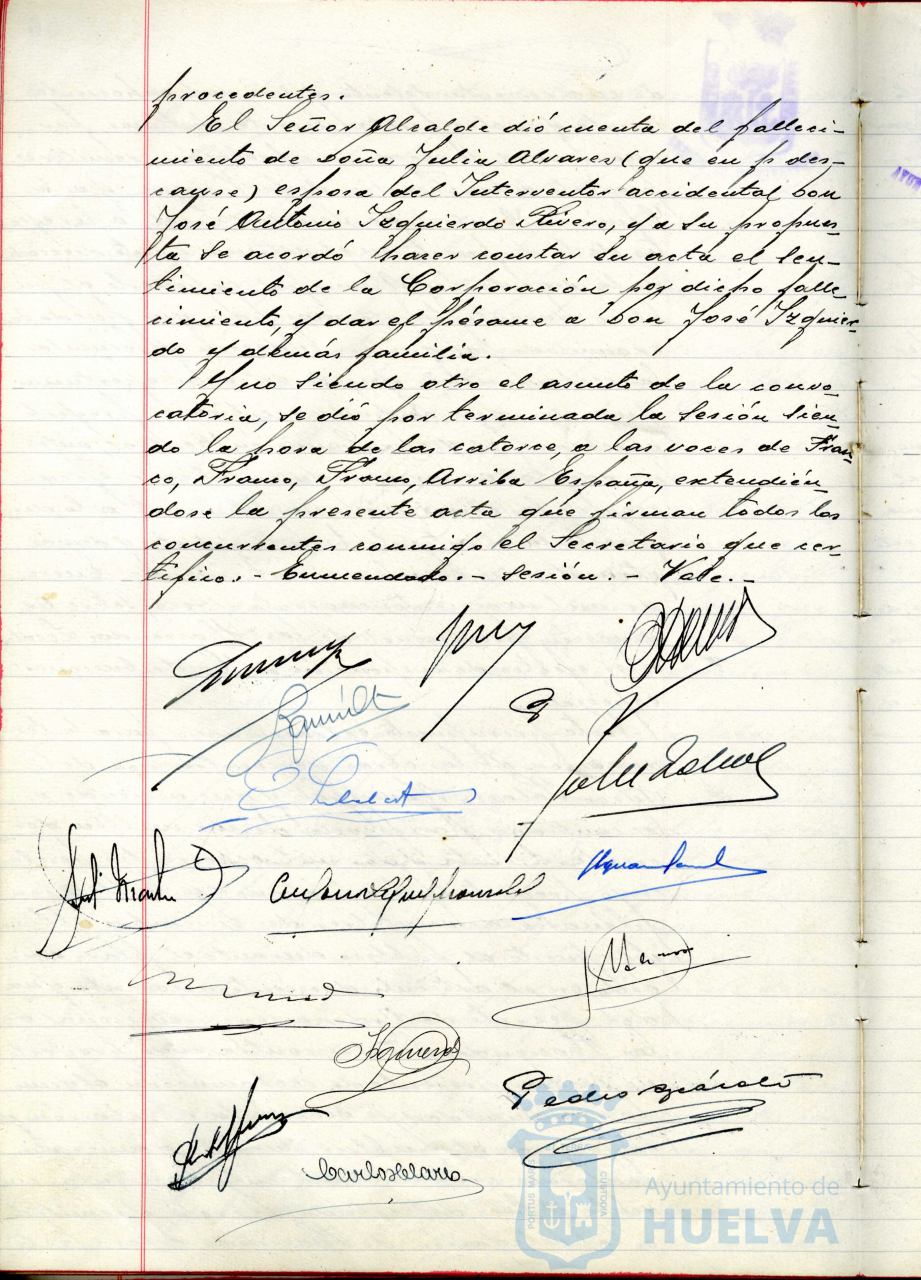 procedentes.
El Señor Alcalde dió cuenta del falleci-
miento de Doña Julia Alvarez (que en p. des-
canse) esposa del Interventor accidental Don
José Antonio Izquierdo Rivero, y a su propues-
ta se acordó hacer constar en acta el sen-
timiento de la Corporación por dicho falle-
cimiento, y dar el pésame a Don José Izquier-
do y demás familia.
Y no siendo otro el asunto de la convo
catoria, se dió por terminada la sesión sien-
do la hora de las catorce, a las voces de Fran-
co, Franco, Franco, Arriba España, extendién-
dose la presente acta que firman todos los
concurrentes conmigo el Secretario que cer-
tifico.- Enmendado.- sesión.- Vale.-
Izquierdo
Pedro
Carlos
PORTUS MARIS
CUSTODIA
Ayuntamiento de
HUELVA